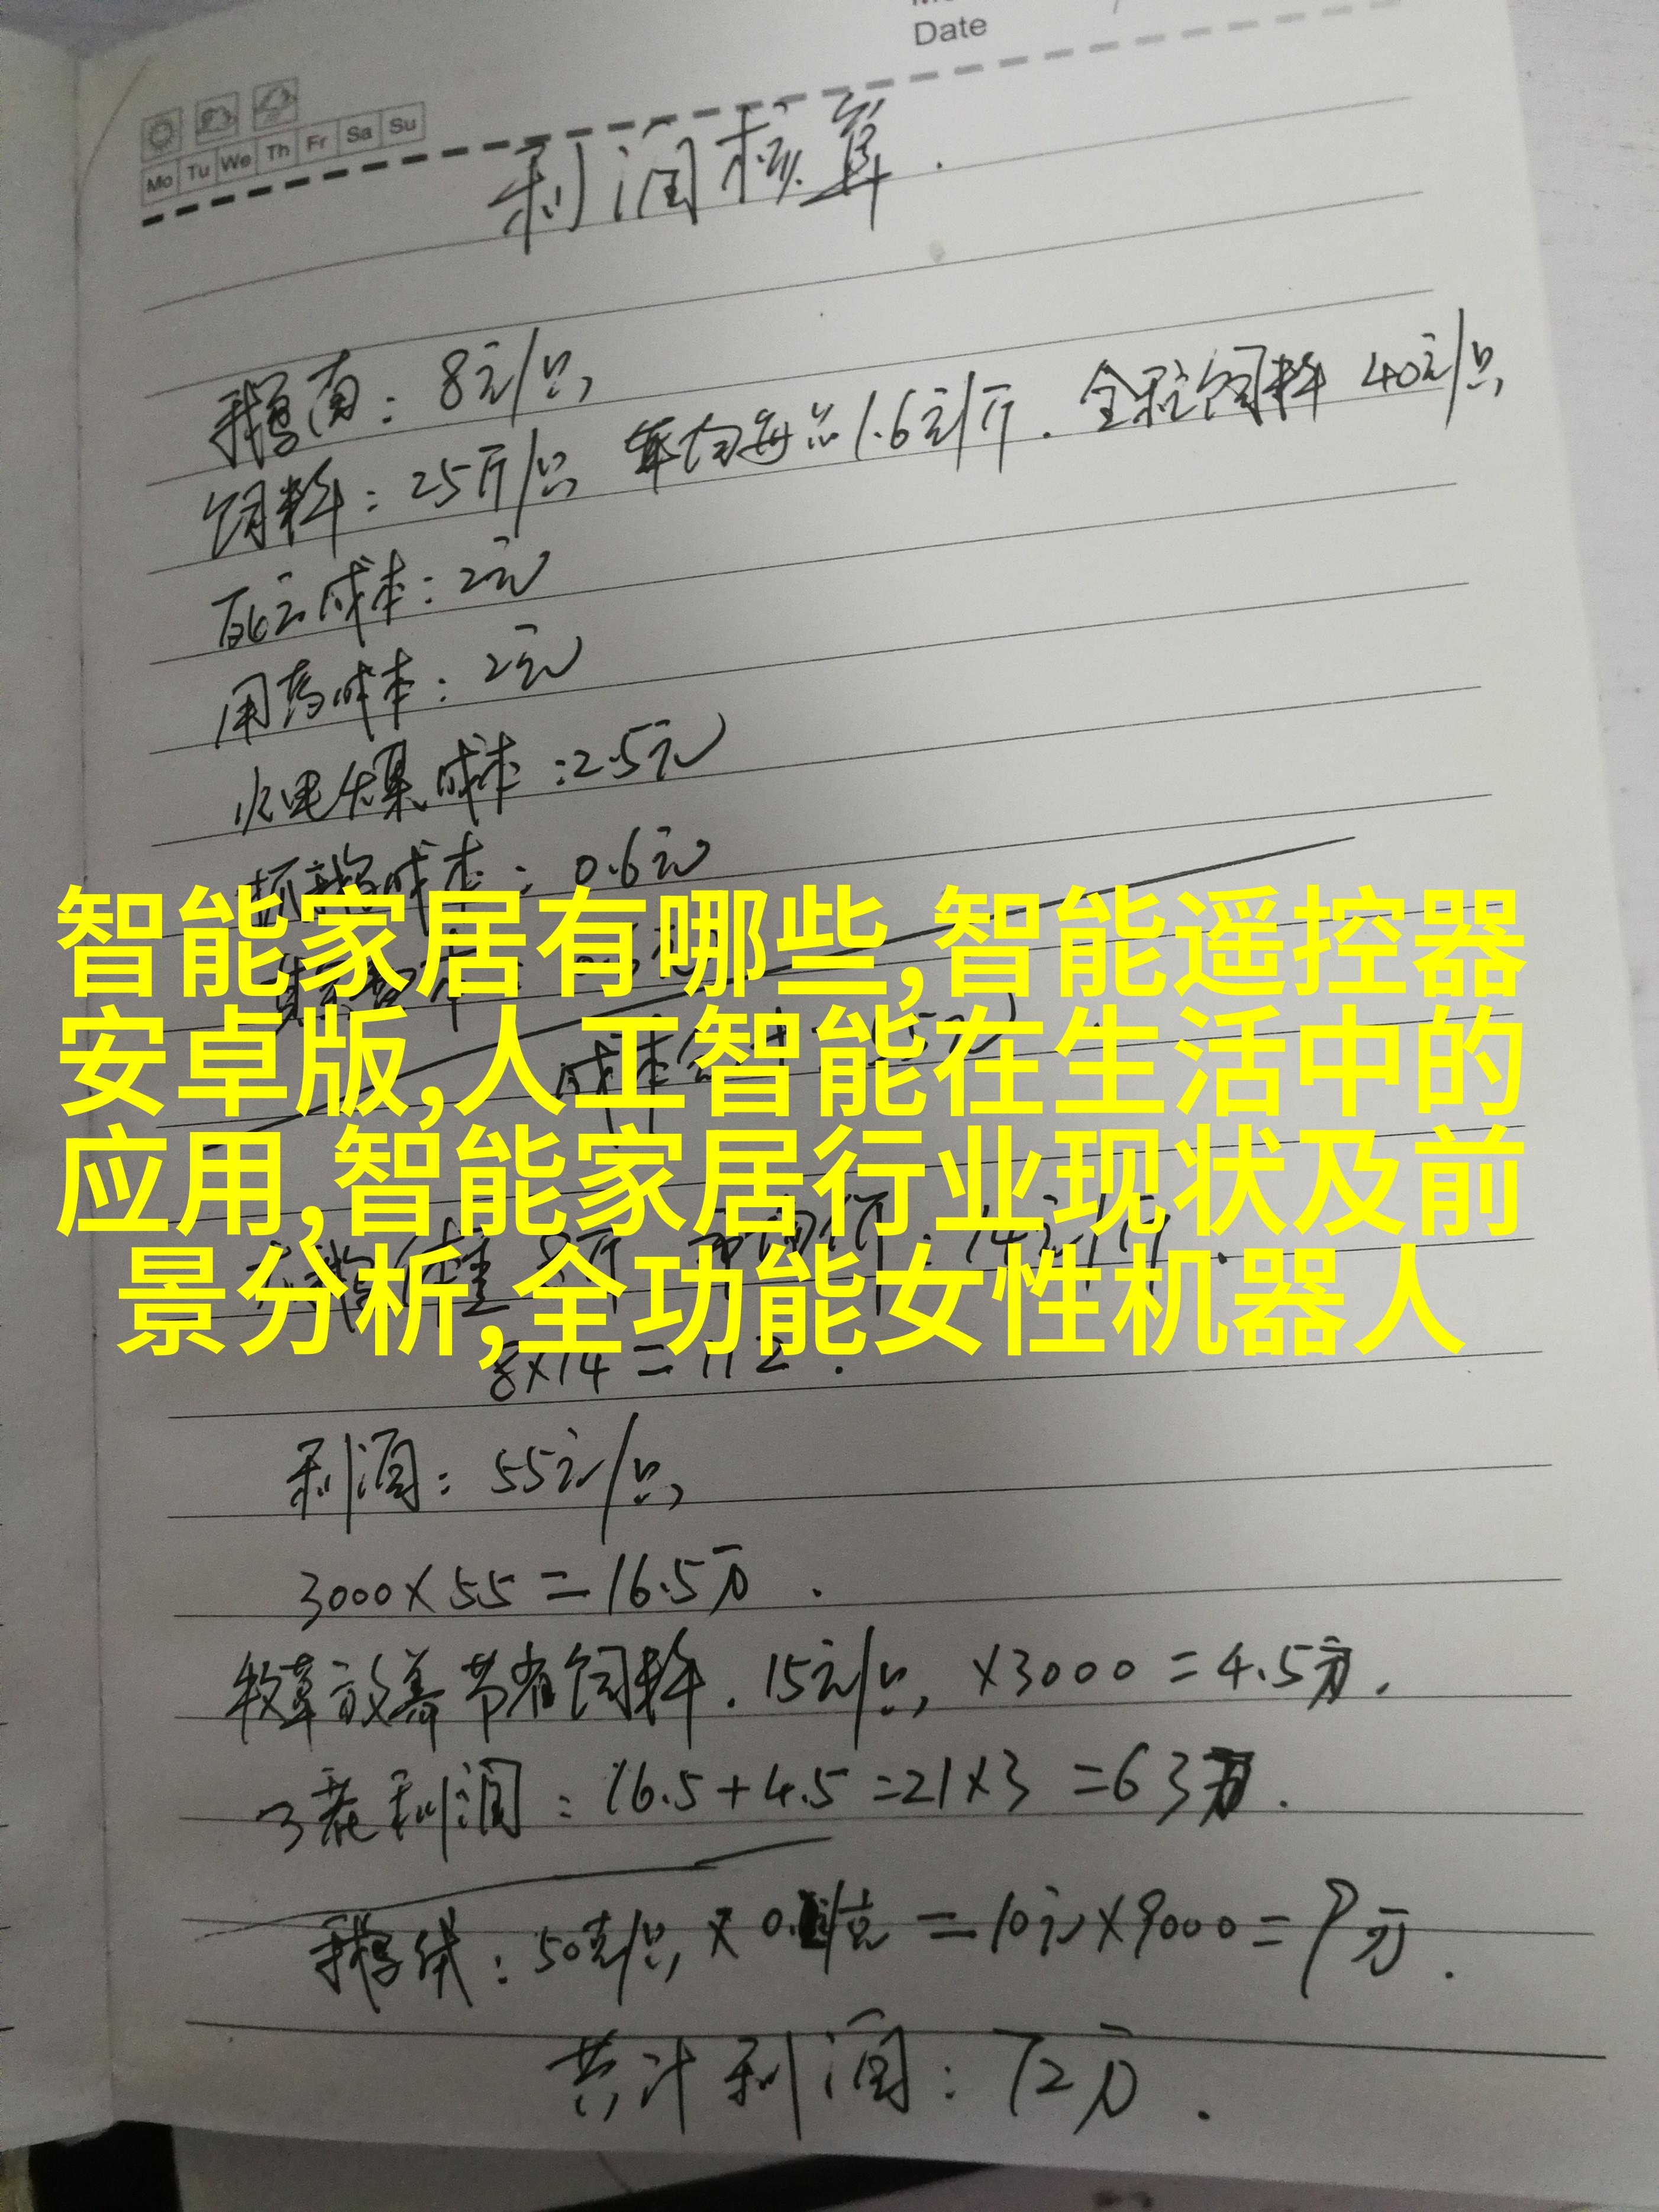 Date
Mo Tu We Th Fr Sa Su
利润核算.
鹅苗: 8元/只,
饲料: 25斤/只, 平均每 1.6元/斤. 全程饲料 40元/只,
死亡成本: 2元
用药成本: 2元
水电煤成本: 2.5元
抓鹅成本: 0.6元
智能家居有哪些,智能遥控器
安卓版,人工智能在生活中的
应用,智能家居行业现状及前
景分析,全功能女性机器人
8×14=112.
利润: 55元/只,
3000×55=16.5万.
牧草放养节省饲料. 15元/只, ×3000=4.5万.
3茬利润: 16.5+4.5=21×3=63万.
鹅绒: 50克/只, × =10元×9000=9万.
共计利润: 72万.